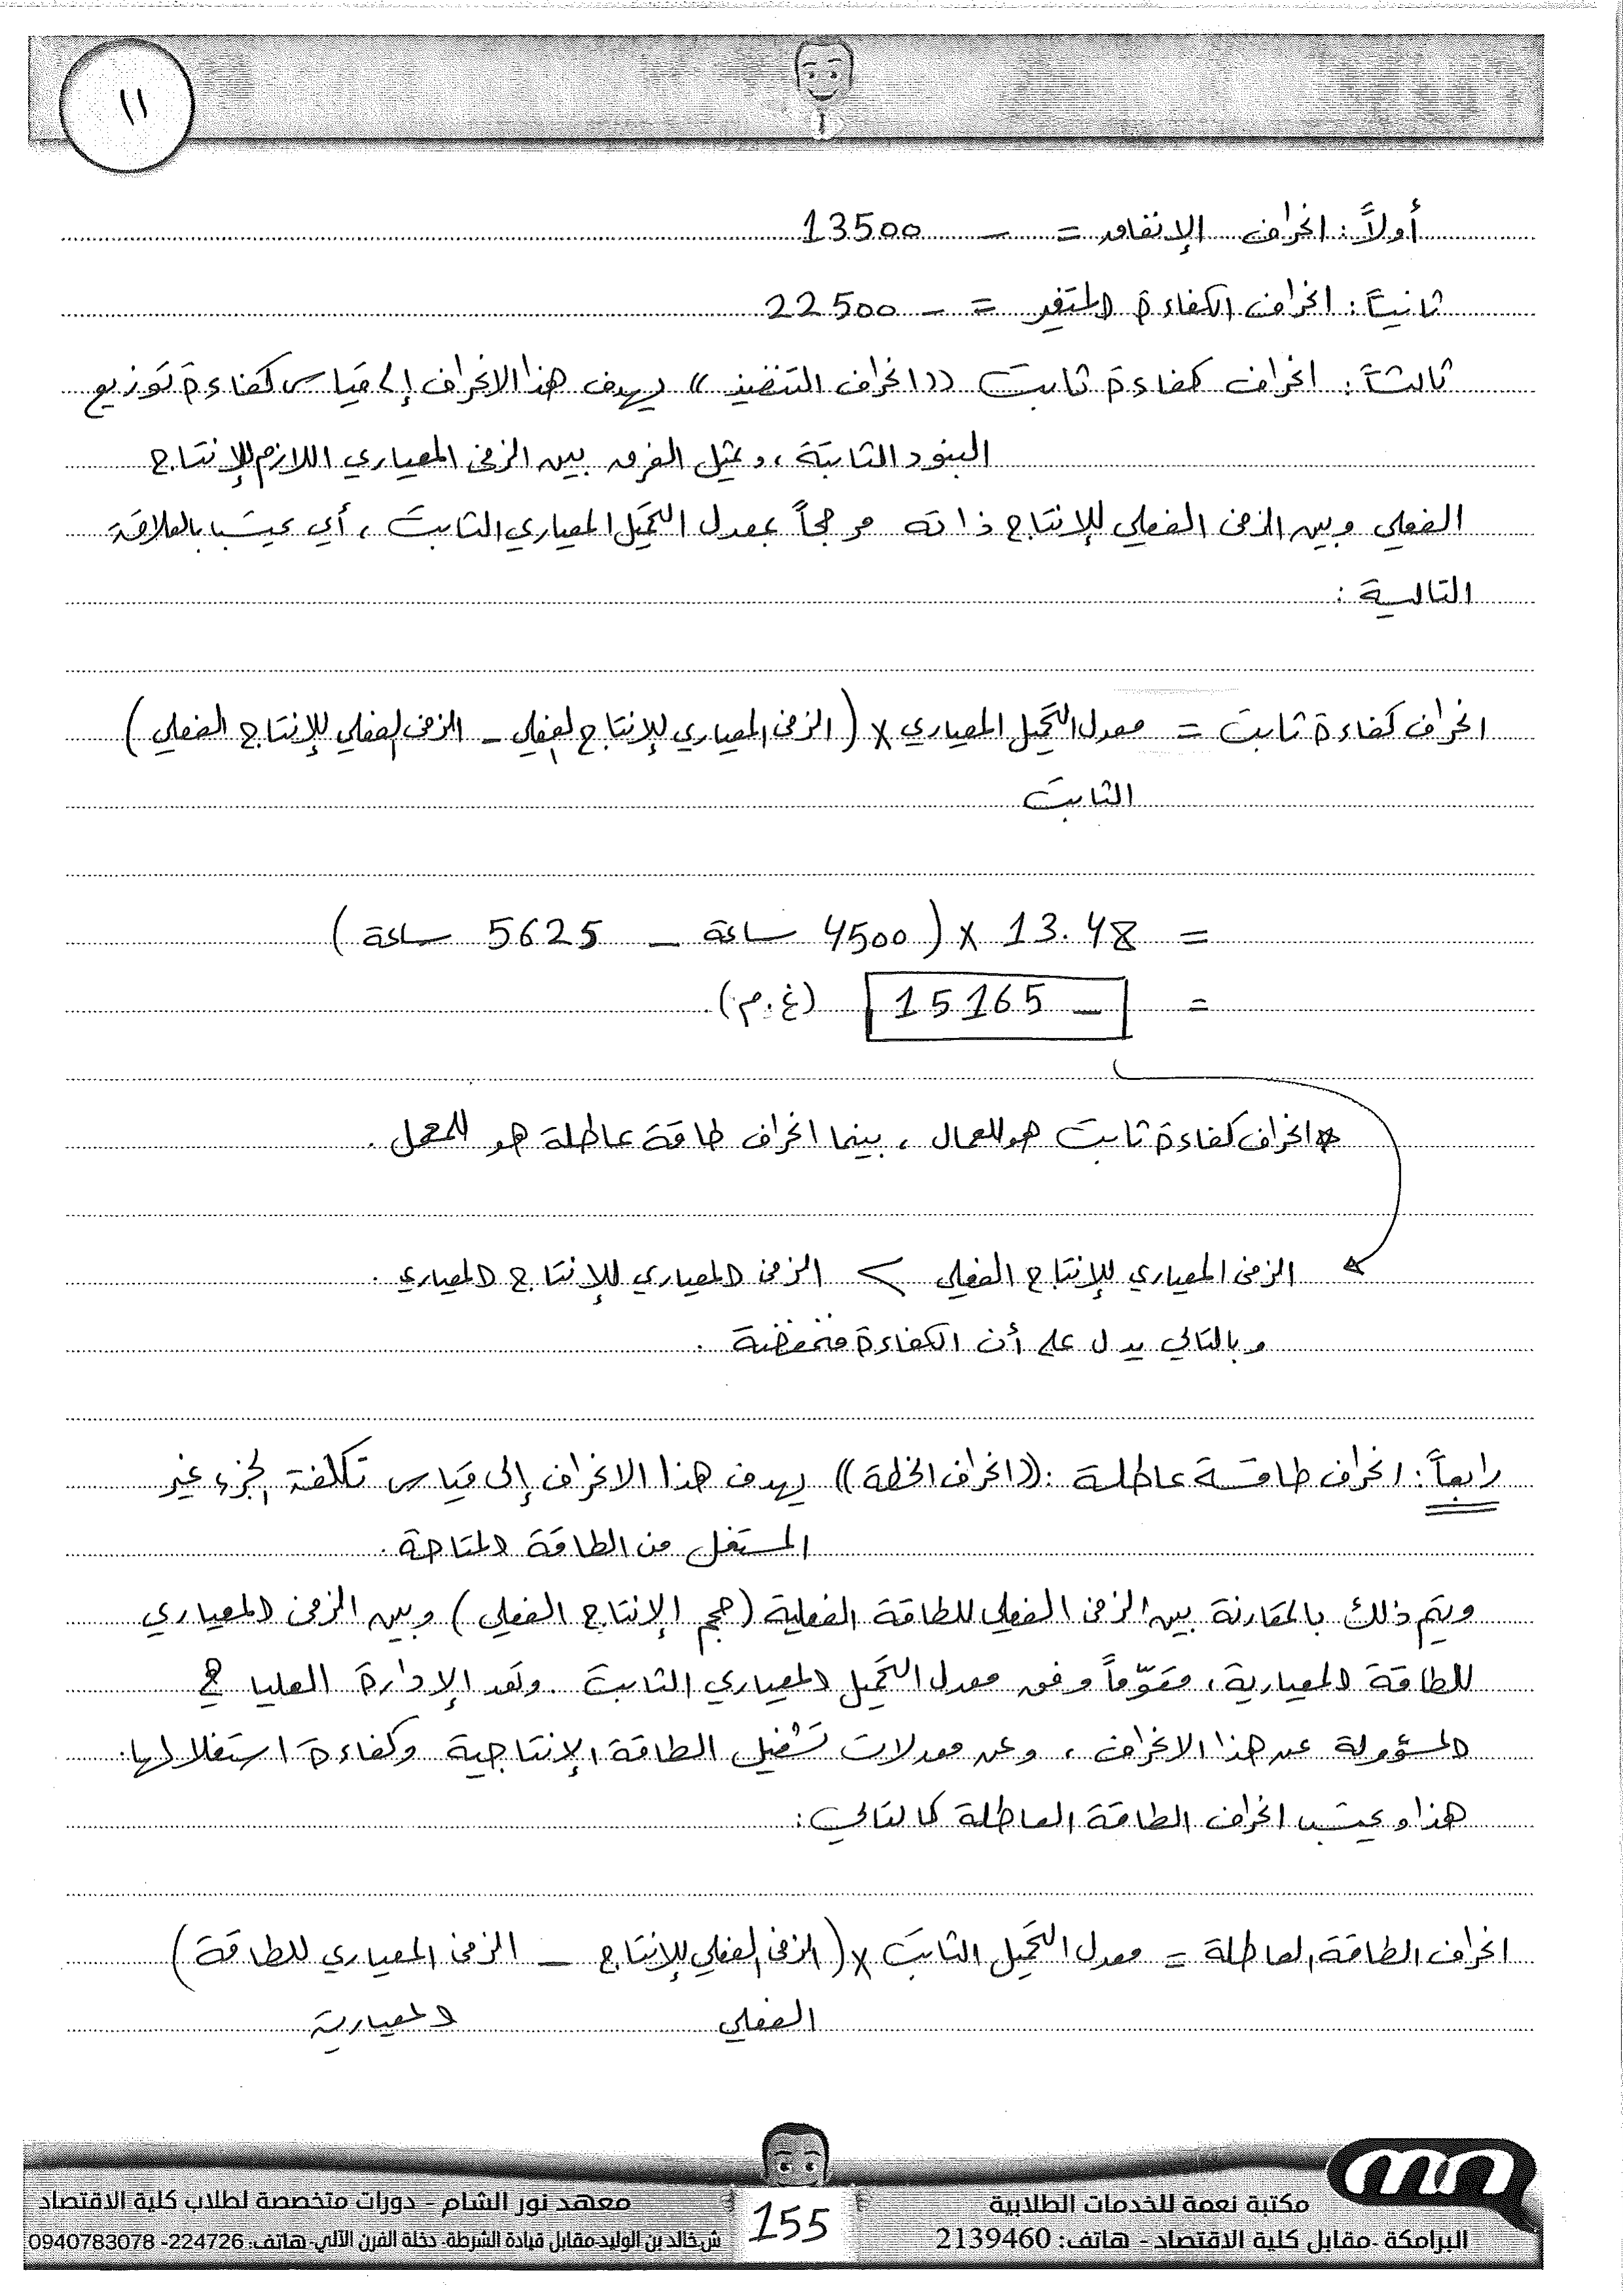 ١١
أولاً: انحراف الإنفاق = - 13500
ثانياً: انحراف الكفاءة المتغير = - 22500
ثالثاً: انحراف كفاءة ثابت ((انحراف التنفيذ)) يهدف هذا الانحراف إلى قياس كفاءة توزيع
البنود الثابتة، ويمثل الفرق بين الزمن المعياري اللازم للإنتاج
الفعلي وبين الزمن الفعلي للإنتاج ذاته مرجحاً بمعدل التحميل المعياري الثابت، أي يحتسب بالعلاقة
التالية:
انحراف كفاءة ثابت = معدل التحميل المعياري × (الزمن المعياري للإنتاج الفعلي - الزمن الفعلي للإنتاج الفعلي)
الثابت
= 13.48 × (4500 ساعة - 5625 ساعة)
= - 15165 (غ.م).
* انحراف كفاءة ثابت هو للعمال، بينما انحراف طاقة عاطلة هو للمعمل.
الزمن المعياري للإنتاج الفعلي > الزمن المعياري للإنتاج المعياري.
وبالتالي يدل على أن الكفاءة منخفضة.
رابعاً: انحراف طاقة عاطلة: ((انحراف الخطة)) يهدف هذا الانحراف إلى قياس تكلفة الجزء غير
المستغل من الطاقة المتاحة.
ويتم ذلك بالمقارنة بين الزمن الفعلي للطاقة الفعلية (حجم الإنتاج الفعلي) وبين الزمن المعياري
للطاقة المعيارية، مقوّماً وفق معدل التحميل المعياري الثابت. وتعد الإدارة العليا هي
المسؤولة عن هذا الانحراف، وعن معدلات تشغيل الطاقة الإنتاجية وكفاءة استغلالها.
هذا ويحتسب انحراف الطاقة العاطلة كالتالي:
انحراف الطاقة العاطلة = معدل التحميل الثابت × (الزمن الفعلي للإنتاج - الزمن المعياري للطاقة)
الفعلي المعيارية
مكتبة نعمة للخدمات الطلابية
البرامكة - مقابل كلية الاقتصاد - هاتف: 2139460
155
معهد نور الشام - دورات متخصصة لطلاب كلية الاقتصاد
ش خالد بن الوليد-مقابل قيادة الشرطة- دخلة الفرن الآلي-هاتف: 224726- 0940783078